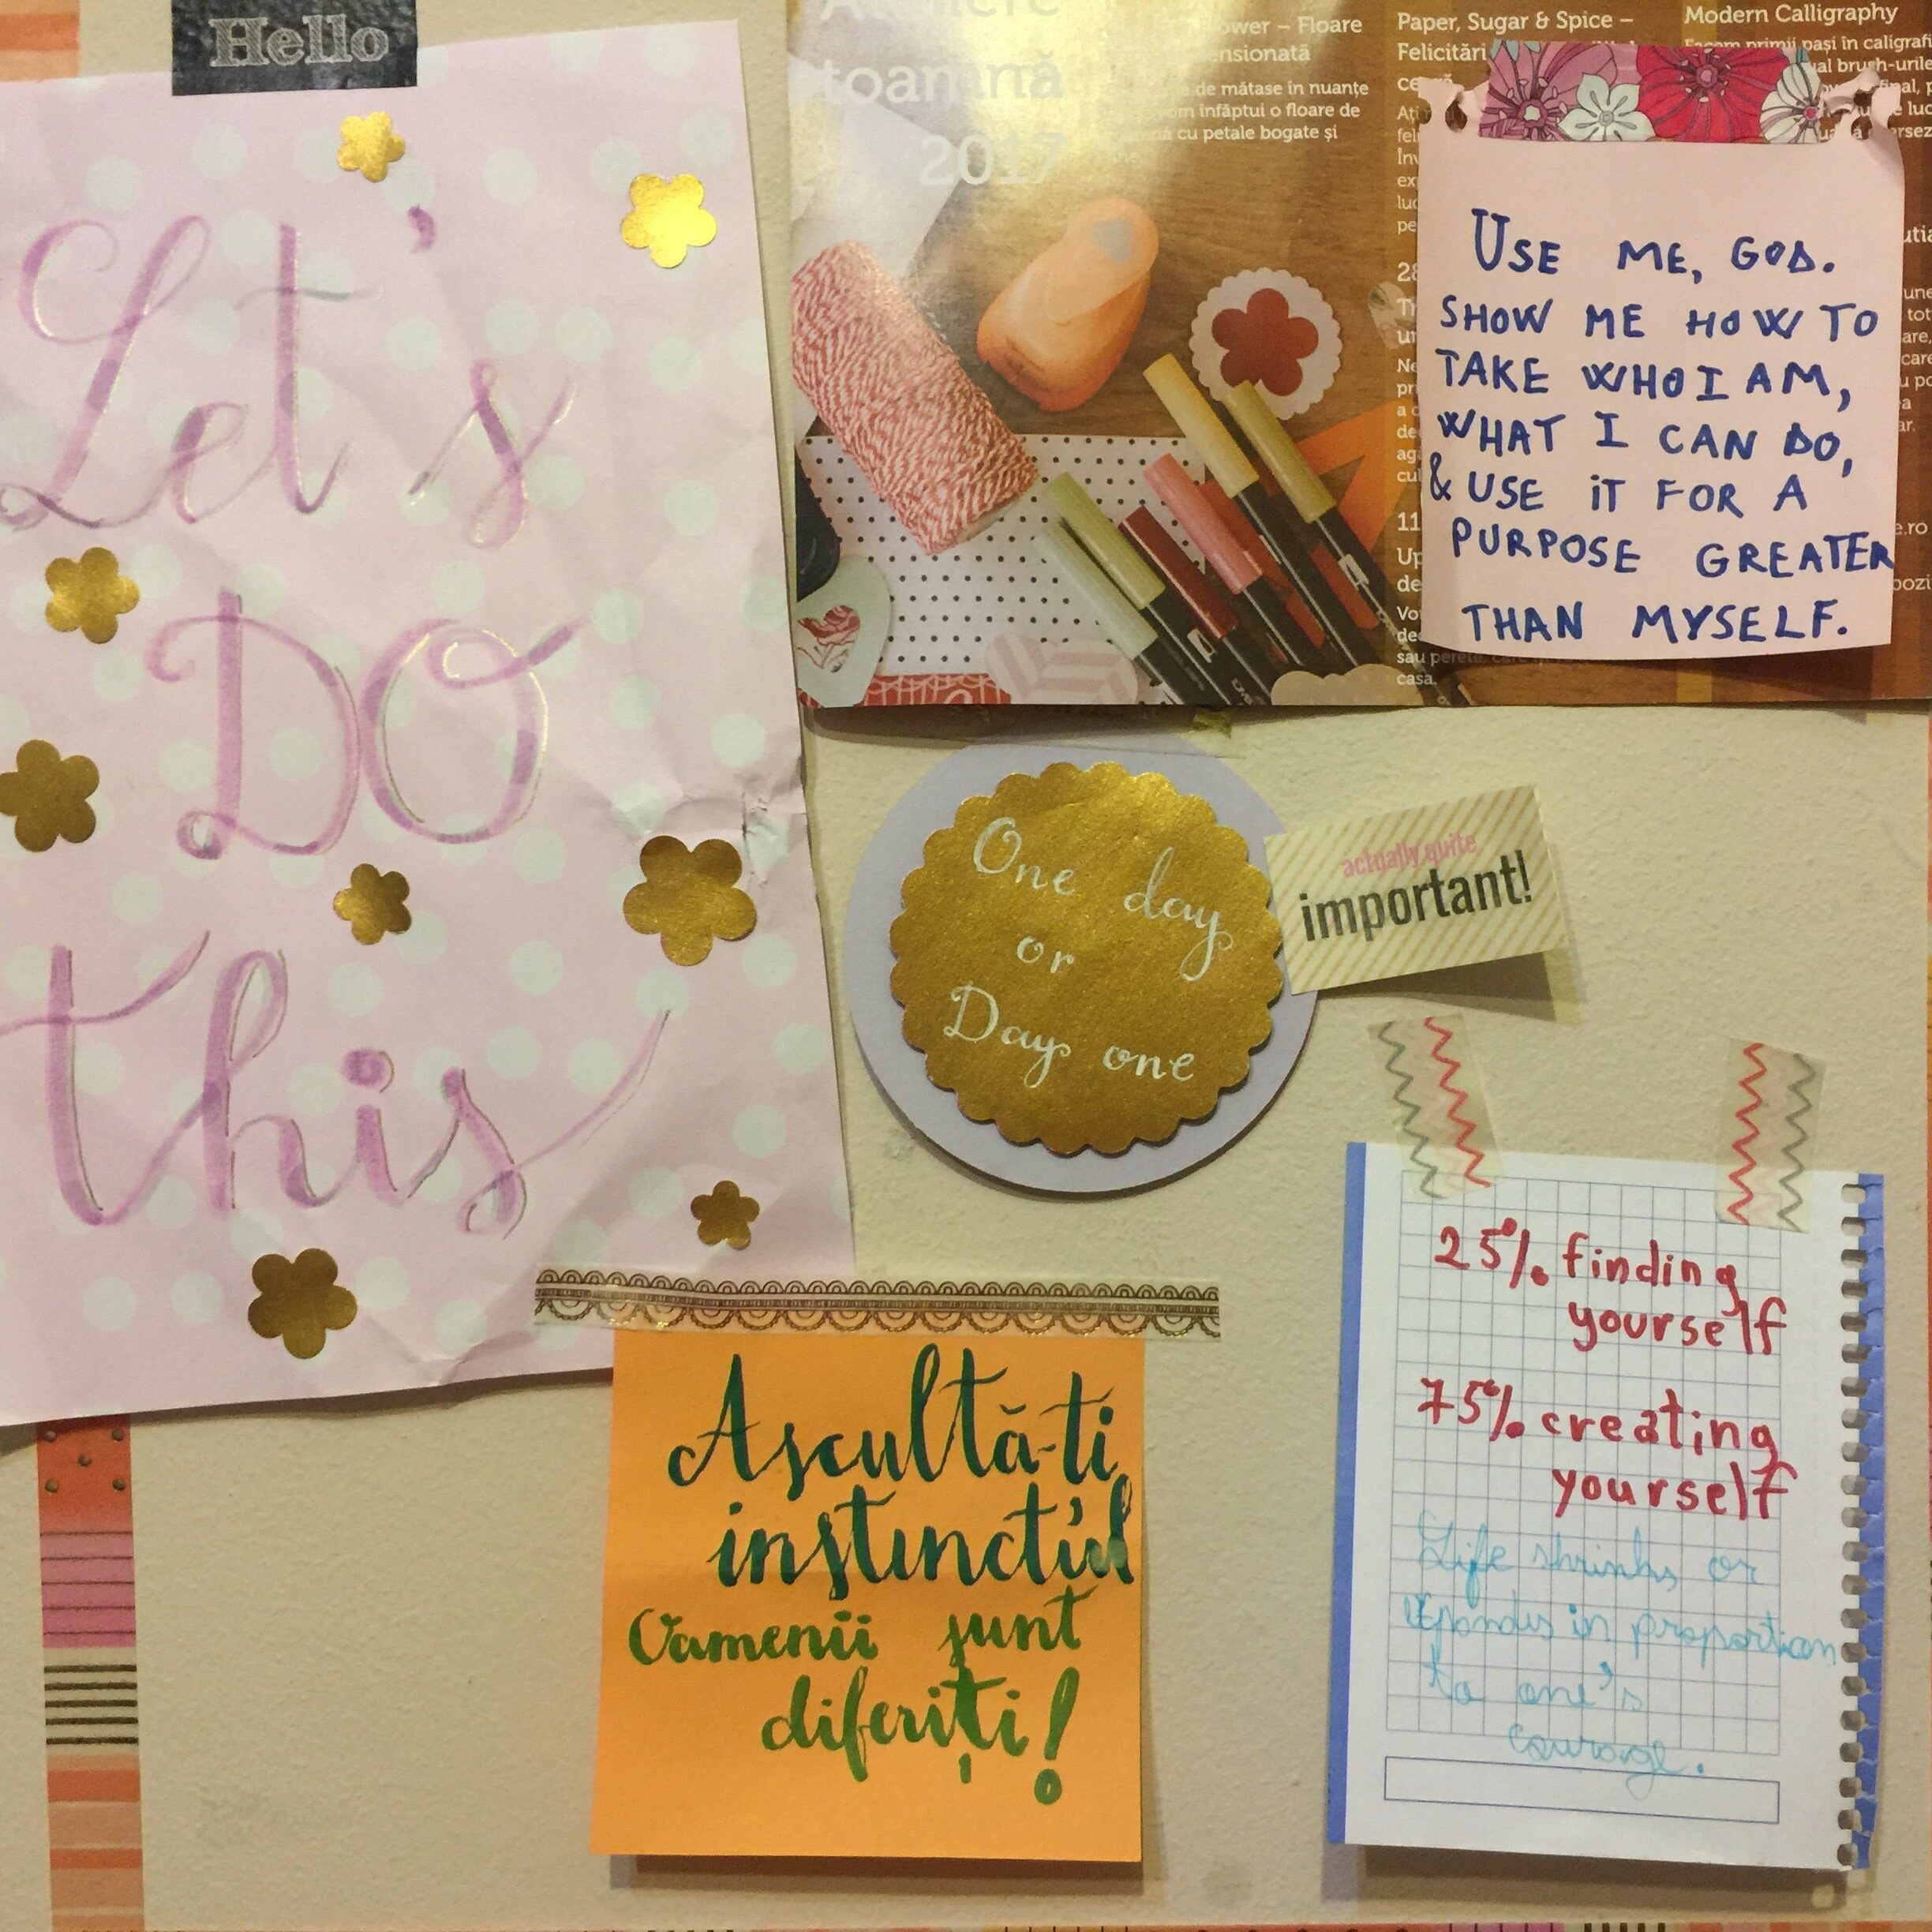 Hello
Let's
DO
this
toamnă
2017
Floare
de mătase în nuanțe
înfăptui o floare de
cu petale bogate și
Paper, Sugar & Spice –
Felicitări
Modern Calligraphy
pași în caligrafi
brush-urile
sau
casa.
USE ME, GOD.
SHOW ME HOW TO
TAKE WHO I AM,
WHAT I CAN DO,
& USE iT FOR A
PURPOSE GREATER
THAN MYSELF.
One day
or
Day one
actually quite
important!
Ascultă-ti
instinctul
Oamenii sunt
diferiți!
25% finding
yourself
75% creating
yourself
Life shrinks or
in proportion
to one's
courage.